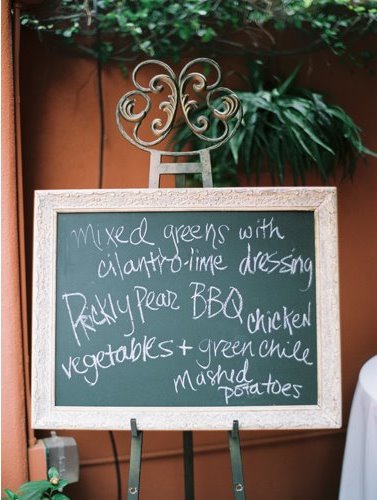 mixed greens with
cilantro-lime dressing
Prickly Pear BBQ chicken
vegetables + green chile
mashed potatoes